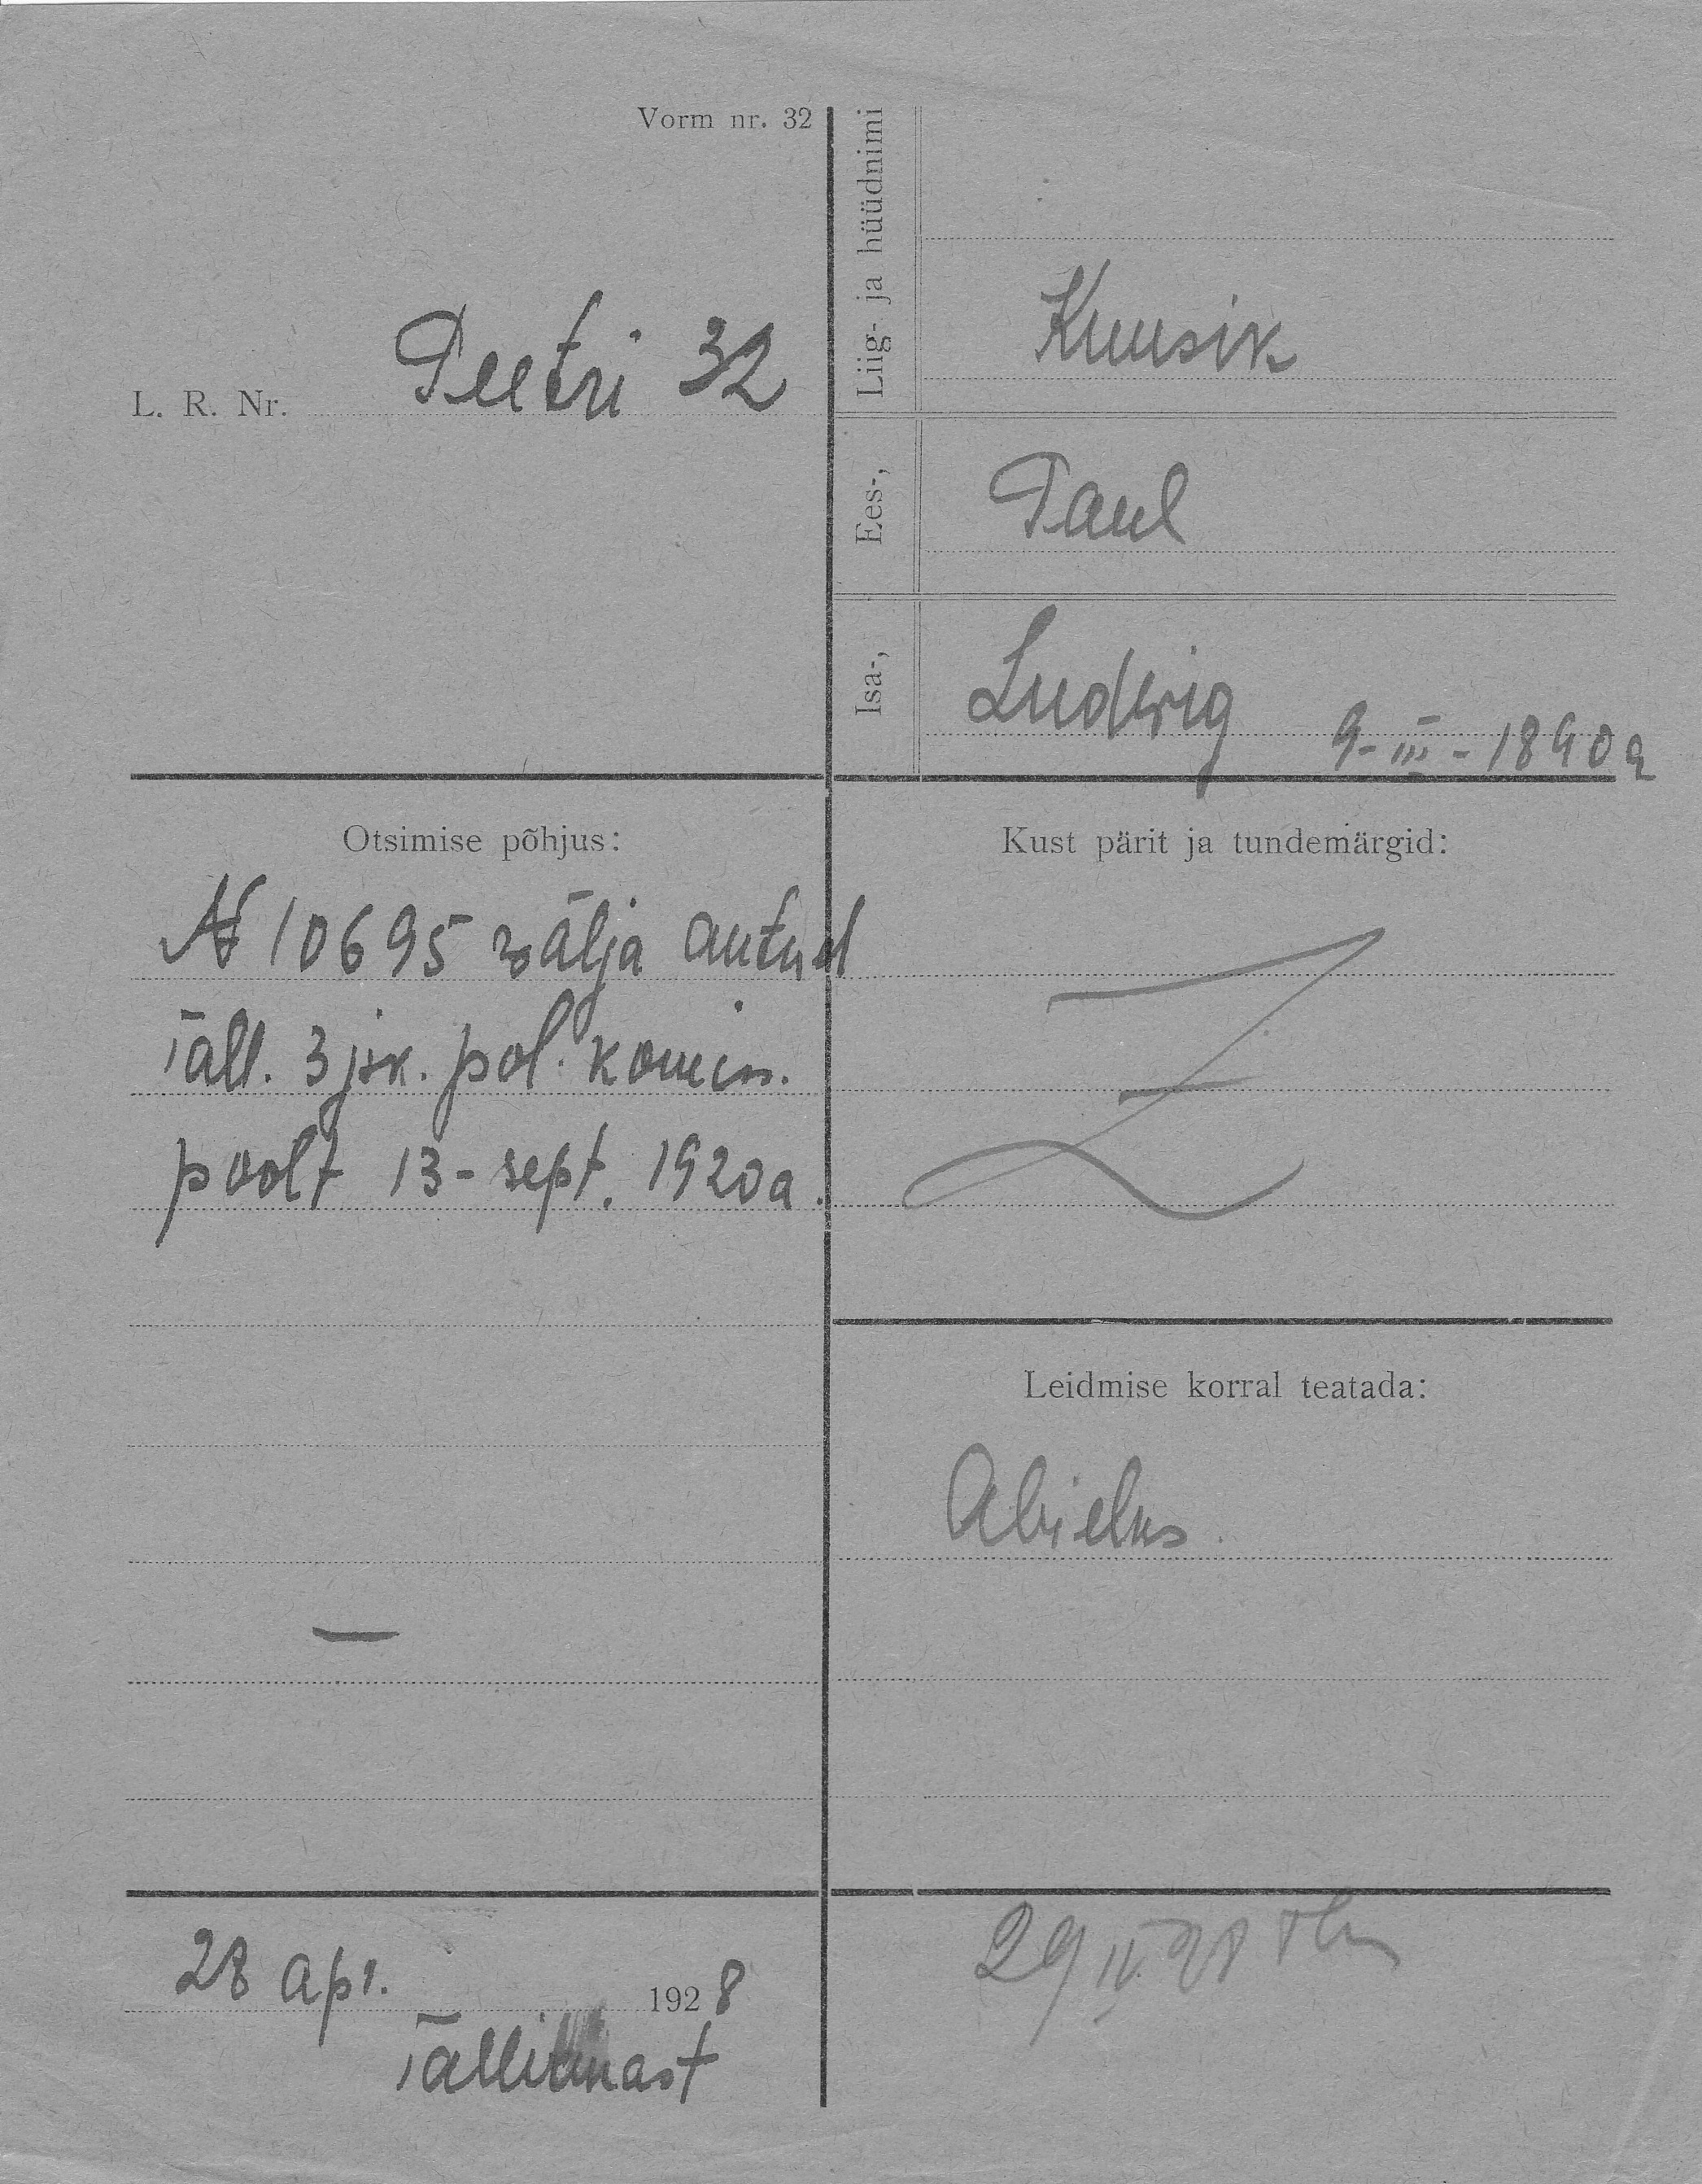 Vorm nr. 32
L. R. Nr. Peetri 32
Liig- ja hüüdnimi
Kuusik
Ees-,
Paul
Isa-,
Ludwig 9-III-1890a
Otsimise põhjus:
№ 10695 wälja antud
Tall. 3 jsk. pol. komis.
poolt 13-sept. 1920a.
Kust pärit ja tundemärgid:
Leidmise korral teatada:
Abielus.
28 apr. 1928
Tallinnast
29 IV 28